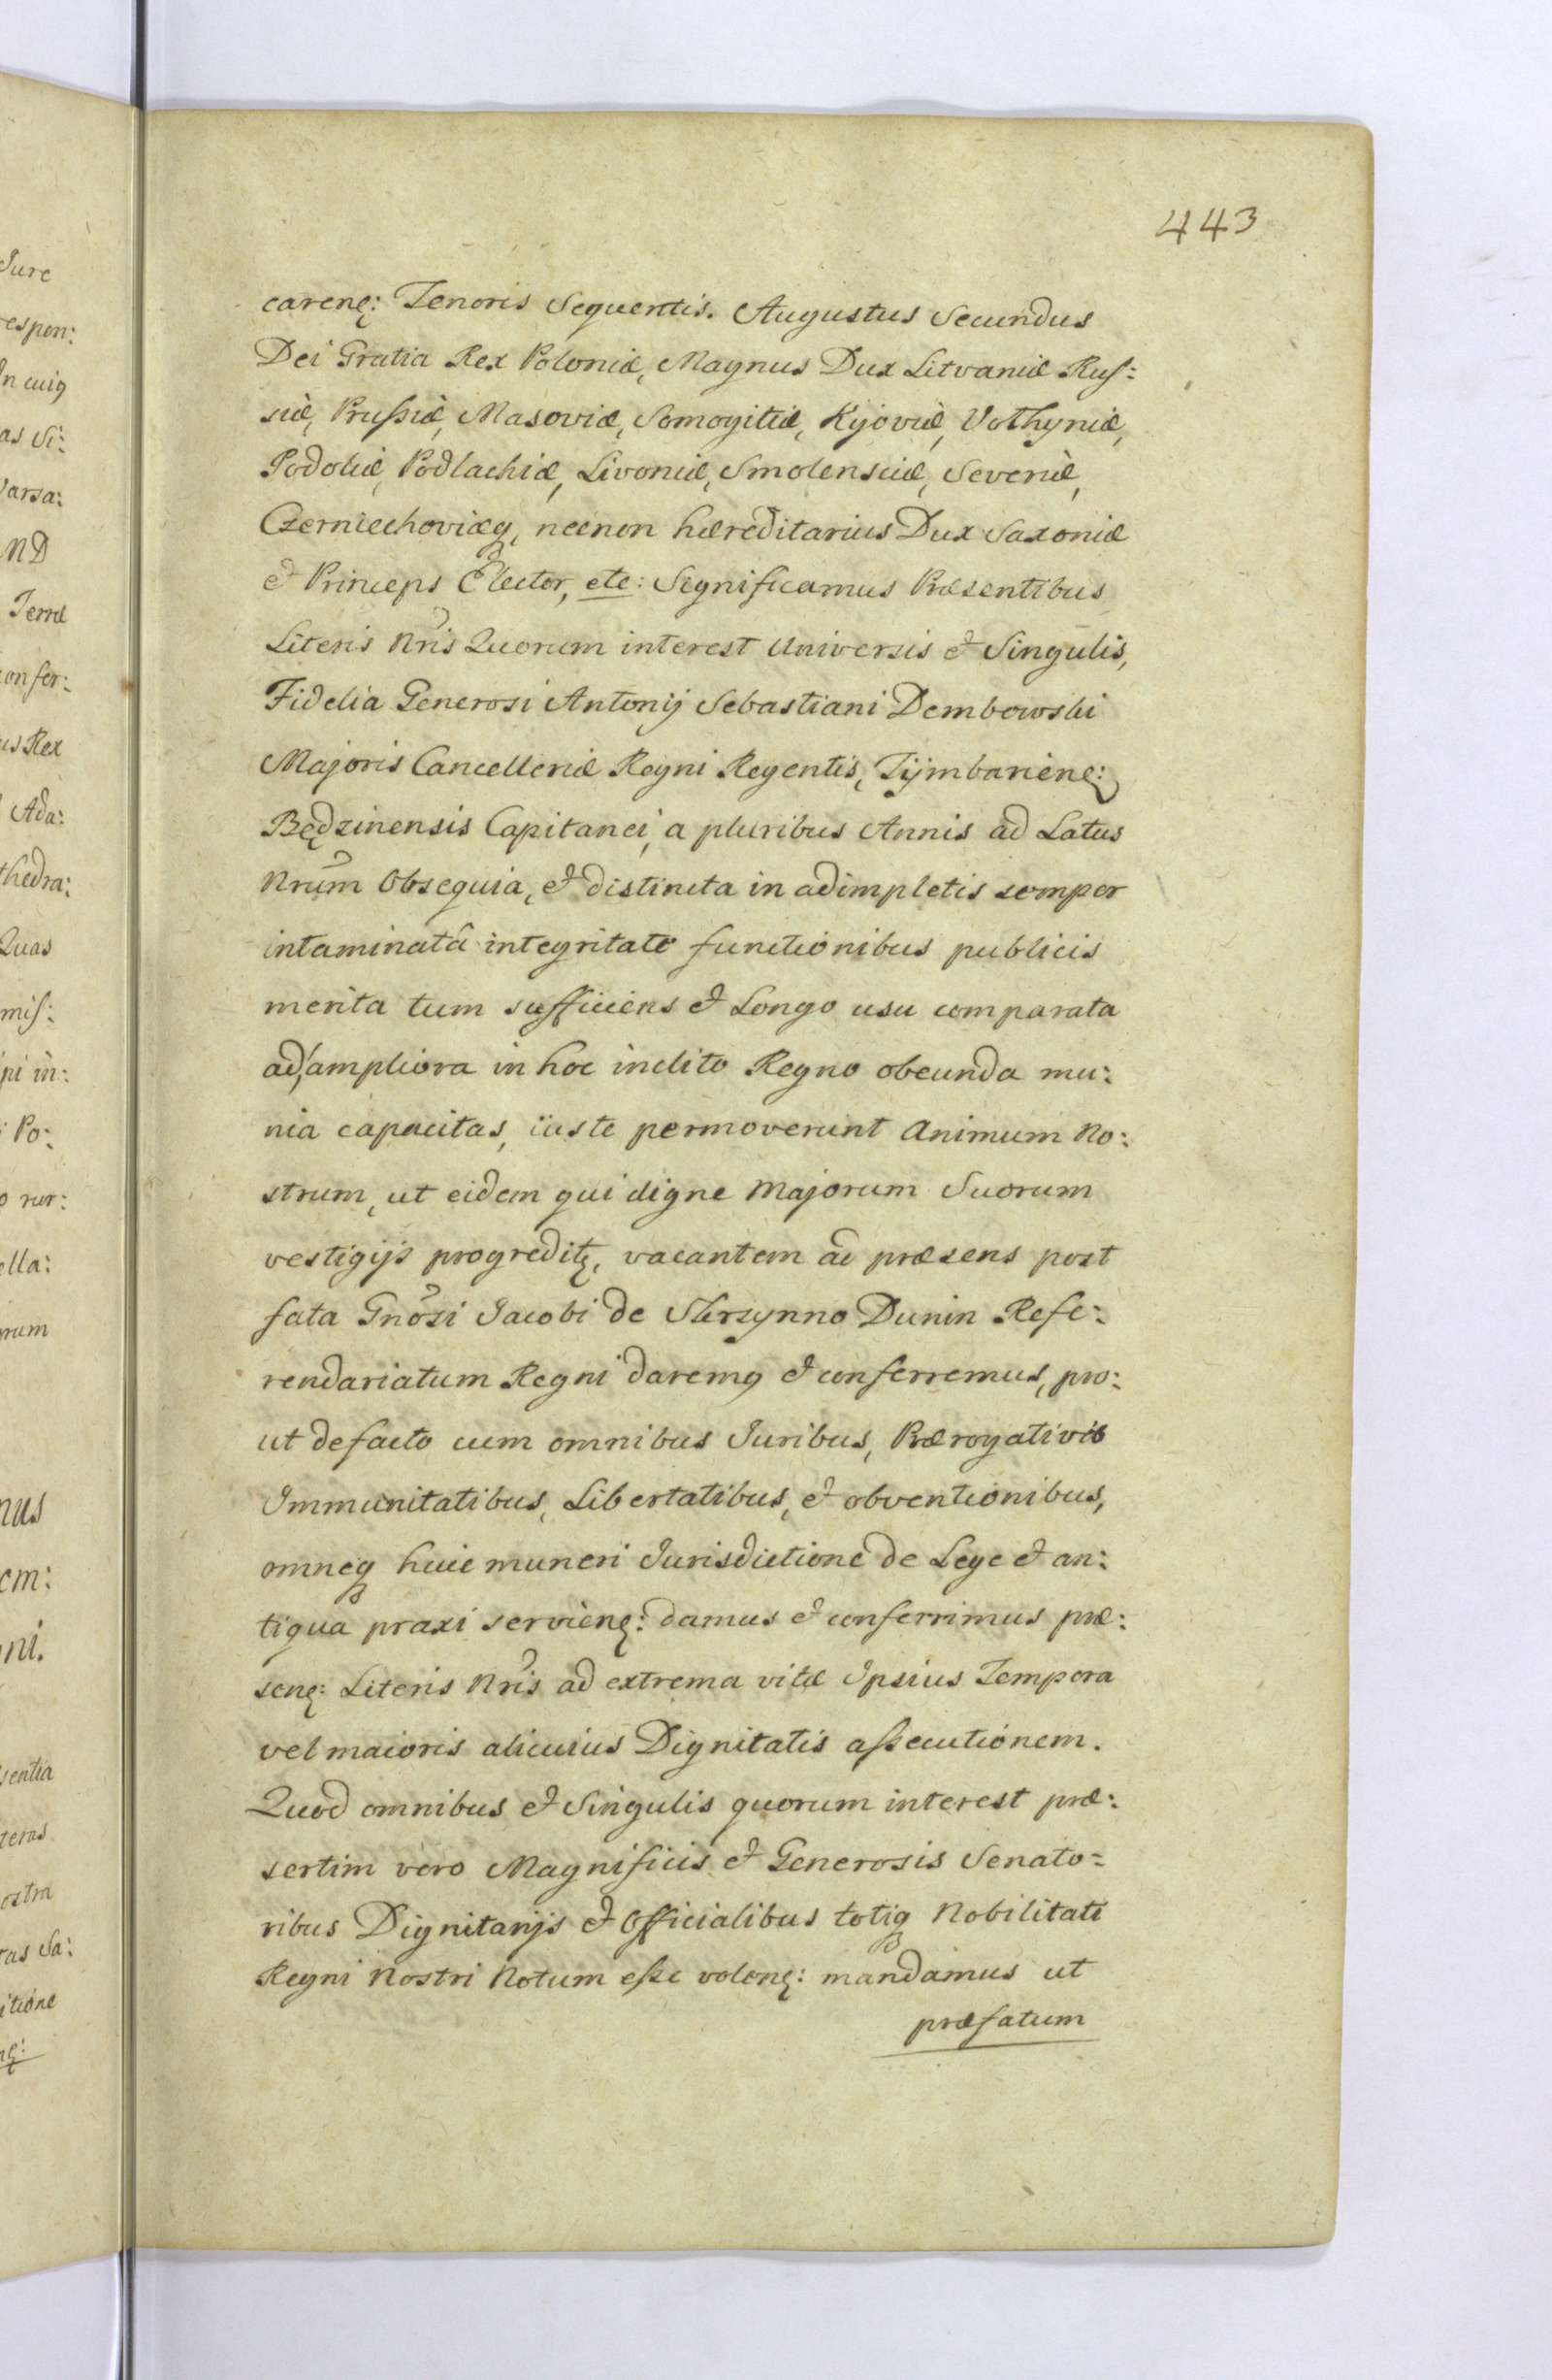 443
carenę: Tenoris Sequentis. Augustus Secundus
Dei Gratia Rex Poloniæ, Magnus Dux Litvaniæ Rus:
siæ, Prussiæ, Masoviæ, Somogitiæ, Kijoviæ, Volhyniæ,
Podoliæ, Podlachiæ, Livoniæ, Smolensciæ, Severiæ,
Czerniechoviæq, necnon hæreditarius Dux Saxoniæ
& Princeps Elector, etc: Significamus Præsentibus
Literis Nris Quorum interest Universis & Singulis,
Fidelia Generosi Antonij Sebastiani Dembowski
Majoris Cancelleriæ Regni Regentis, Tijmbarienę:
Będzinensis Capitanei, a pluribus Annis ad Latus
Nrum Obsequia, & distincta in adimpletis semper
intaminatâ integritate functionibus publicis
merita tum sufficiens & Longo usu comparata
ad ampliora in hoc inclito Regno obeunda mu:
nia capacitas, iuste permoverunt Animum No:
strum, ut eidem qui digne Majorum Suorum
vestigijs progreditę, vacantem ad præsens post
fata Gnosi Jacobi de Skrzynno Dunin Refe:
rendariatum Regni daremꝰ & conferremus, pro:
ut defacto cum omnibus Juribus, Prærogativis
Immunitatibus, Libertatibus, & obventionibus,
omneq huic muneri Jurisdictione de Lege & an:
tiqua praxi servienę: damus & conferrimus præ:
senę: Literis Nris ad extrema vitæ Ipsius Tempora
vel maioris alicuius Dignitatis assecutionem.
Quod omnibus & Singulis quorum interest præ:
sertim vero Magnificis & Generosis Senato:
ribus Dignitarijs & Officialibus totiq Nobilitati
Regni Nostri Notum esse volenę: mandamus ut
præfatum
Jure
respon:
In cuiꝰ
as Si:
Varsa:
ND
Terræ
confer:
us Rex
Ada:
thedra:
Quas
mis:
pi in:
Po:
o rur:
ella:
rum
nus
em:
ni.
sentia
teras
ostra
ras Sa:
itione